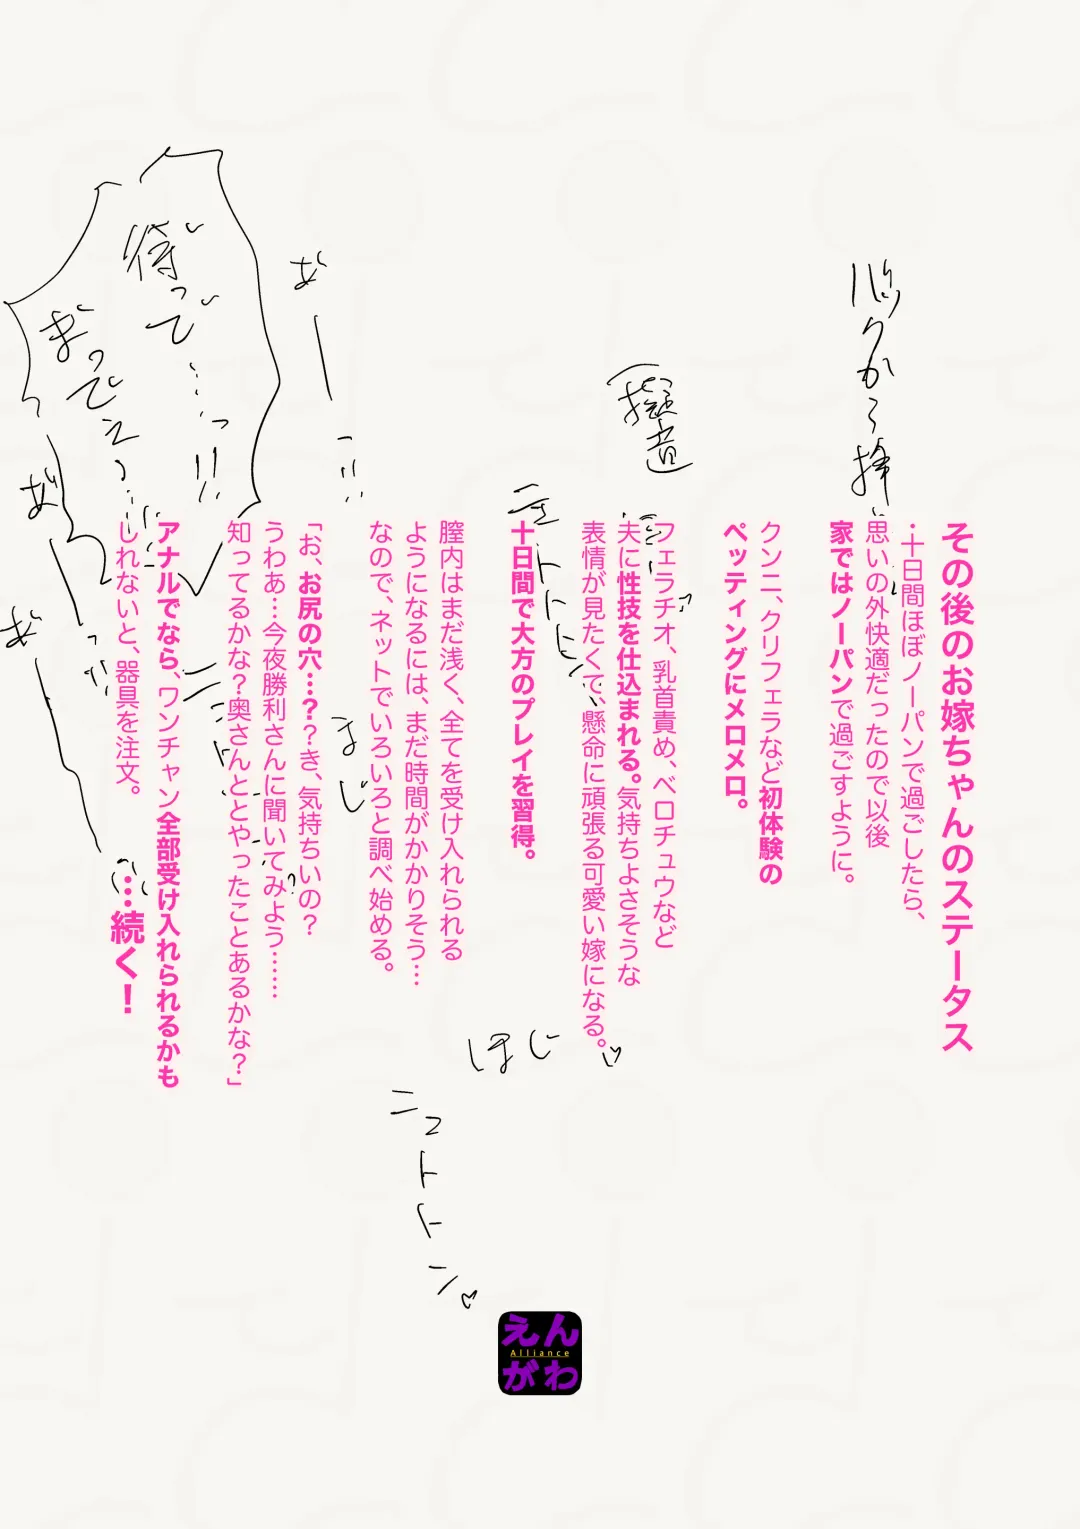 その後のお嫁ちゃんのステータス
・十日間ほぼノーパンで過ごしたら、
思いの外快適だったので以後
家ではノーパンで過ごすように。
クンニ、クリフェラなど初体験の
ペッティングにメロメロ。
フェラチオ、乳首責め、ベロチュウなど
夫に性技を仕込まれる。気持ちよさそうな
表情が見たくて、懸命に頑張る可愛い嫁になる。
十日間で大方のプレイを習得。
膣内はまだ浅く、全てを受け入れられる
ようになるには、まだ時間がかかりそう…
なので、ネットでいろいろと調べ始める。
「お、お尻の穴…？？き、気持ちいいの？
うわあ…今夜勝利さんに聞いてみよう……
知ってるかな？奥さんととやったことあるかな？」
アナルでなら、ワンチャン全部受け入れられるかも
しれないと、器具を注文。
…続く！
バックから挿
擬音
ほじ
ニュトトン♡
まじ
待っで…っ!!
まっでえ
えん
Alliance
がわ